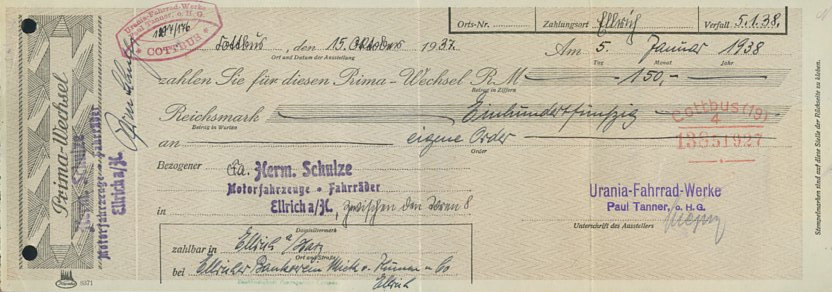 Urania-Fahrrad-Werke
Paul Tanner, o.H.G.
COTTBUS
Orts-Nr. Zahlungsort Ellrich Verfall 5.1.38.
Cottbus, den 15. Oktober 1937. Am 5. Januar 1938
Ort und Datum der Ausstellung Tag Monat Jahr
zahlen Sie für diesen Prima-Wechsel RM -150,-
Betrag in Ziffern
Reichsmark Einhundertfünfzig
Betrag in Worten
an eigene Order
Order
Cottbus (19)
4
13851927
Bezogener Fa. Herm. Schulze
Motorfahrzeuge • Fahrräder
in Ellrich a/H., zwischen den Toren 8
Domizilvermerk
zahlbar in Ellrich a/Harz
Ort und Straße
bei Ellricher Bankverein & Co
Ellrich
Urania-Fahrrad-Werke
Paul Tanner, o.H.G.
Unterschrift des Ausstellers
Prima-Wechsel
Herm. Schulze
Motorfahrzeuge • Fahrräder
Ellrich a/H.
8371
Stempelmarken sind auf diese Stelle der Rückseite zu kleben.